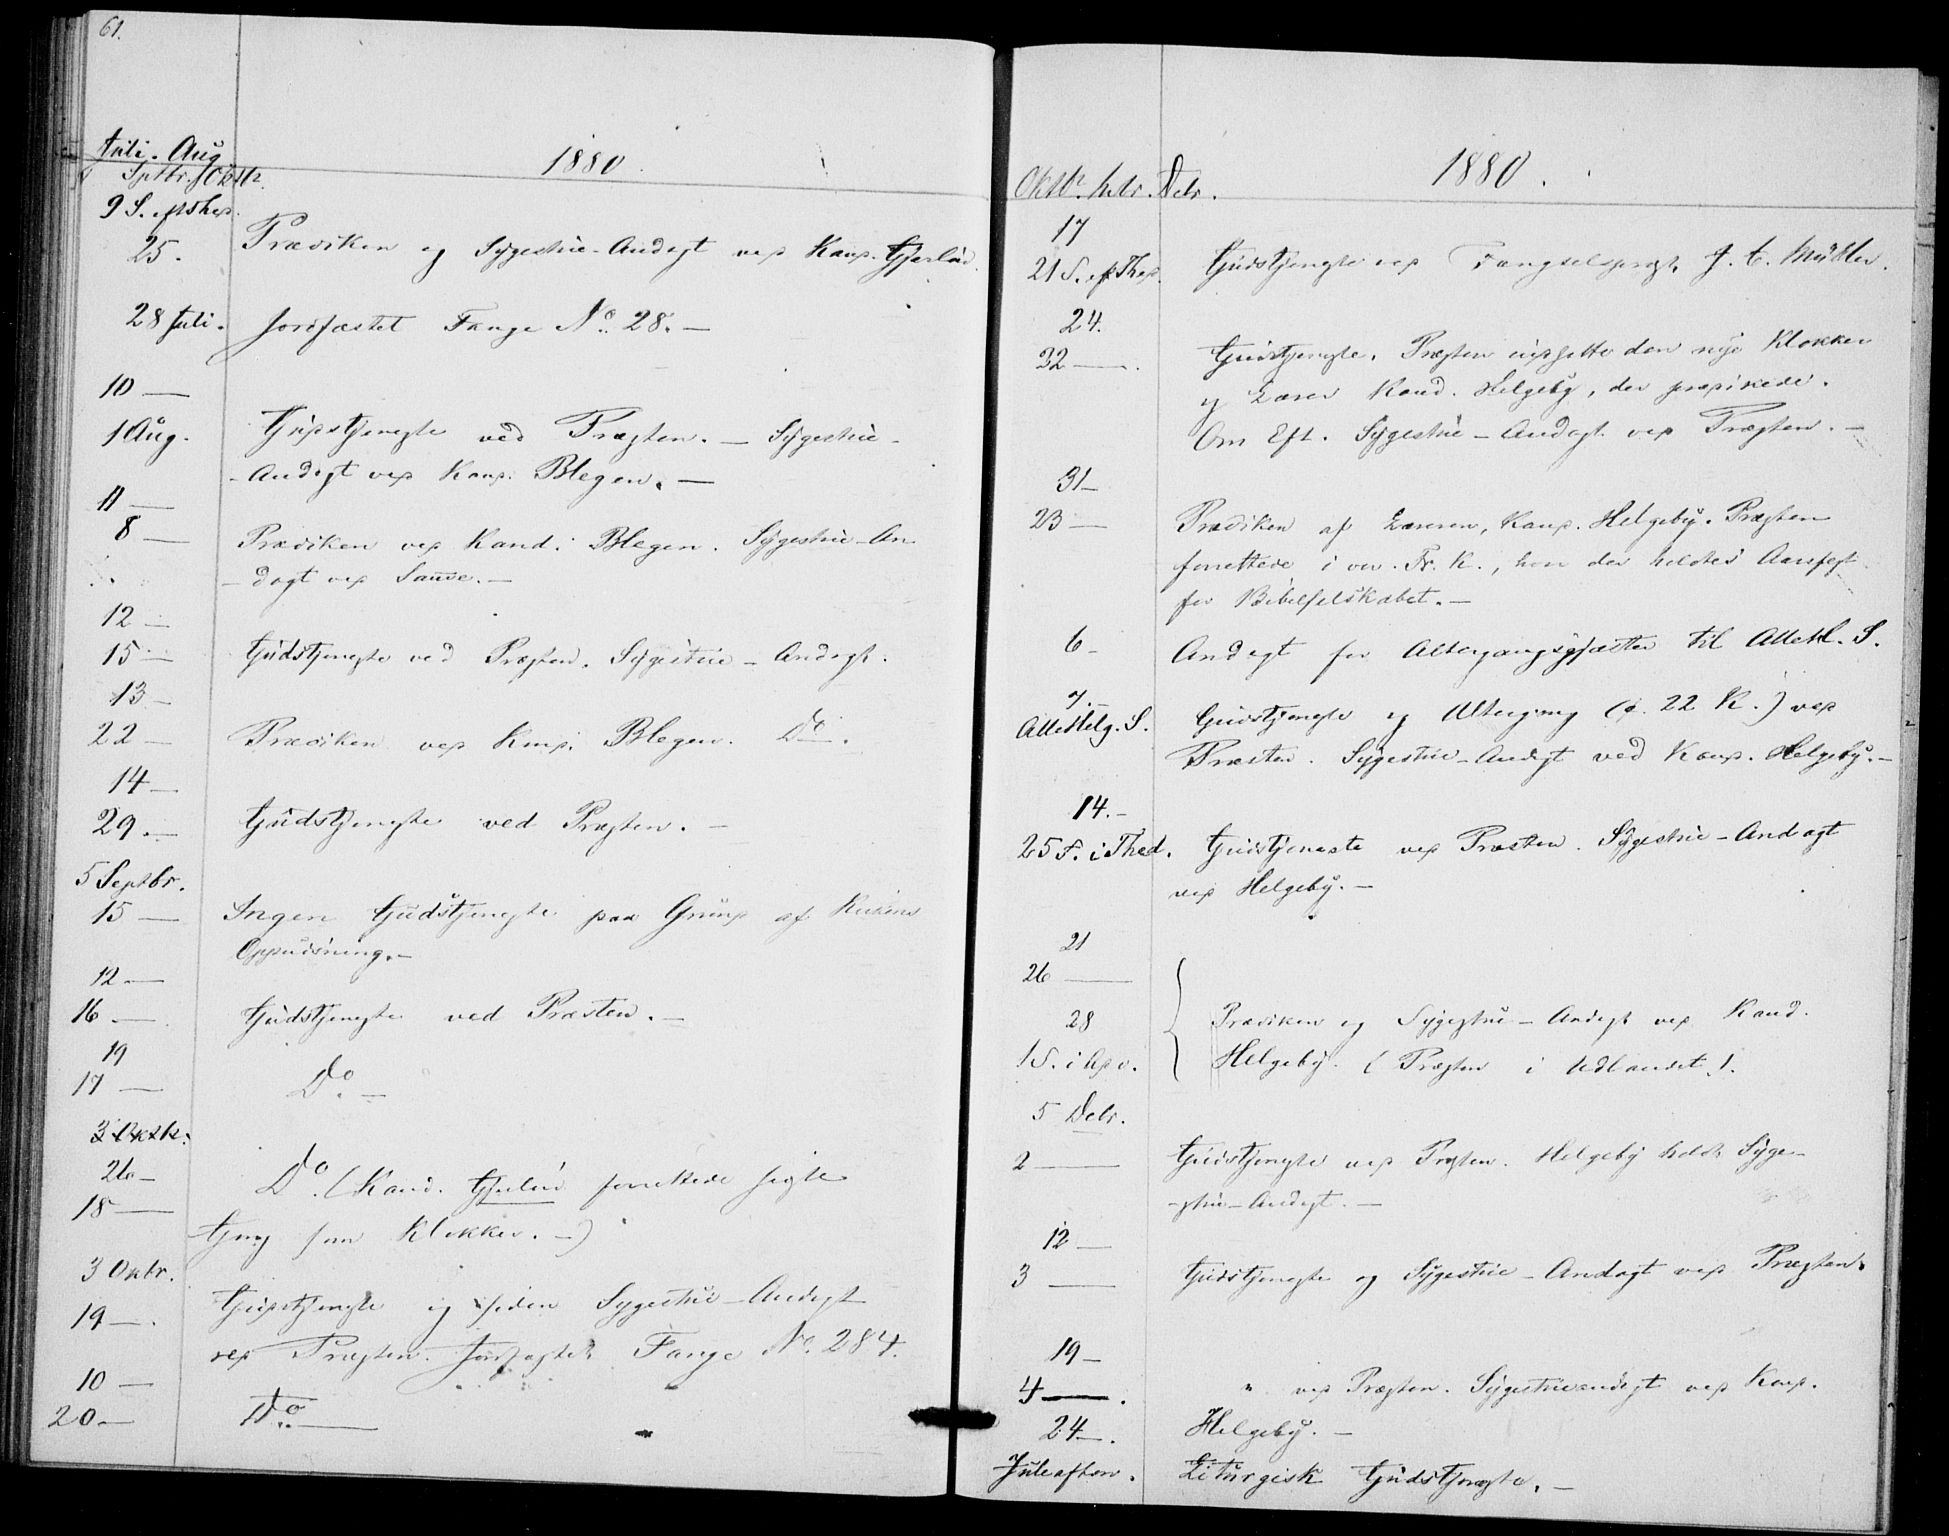 61.
Juli. Aug
Sptbr. Oktb.
1880
9 S. eft Thep.
25.
Prædiken og Sygestue-Andagt ved Kand. Gjerløv.
28 Juli.
Jordfæstet Fange No. 28. —
10 —
1 Aug.
Gudstjeneste ved Præsten. — Sygestue-
-Andagt ved Kand. Blegen. —
11 —
8 —
Prædiken ved Kand. Blegen. Sygestue-An
-dagt ved Samme. —
12 —
15 —
Gudstjeneste ved Præsten. Sygestue-Andagt.
13 —
22 —
Prædiken ved Kand. Blegen. Do.
14 —
29. —
Gudstjeneste ved Præsten. —
5 Septbr.
15 —
Ingen Gudstjeneste paa Grund af Kirkens
Oppudsning. —
12. —
16 —
Gudstjeneste ved Præsten. —
19
17 —
Do. —
3 Oktb.
26 —
18 —
Do. (Kand. forrettede sidste
Gang som Klokker. —)
3 Oktbr.
19 —.
Gudstjeneste og siden Sygestue-Andagt
ved Præsten. Jordfæstet Fange No. 284.
10 —
20 —
Do. —
Oktbr. Debr.
1880.
17
21 S. eft Thep.
Gudstjeneste ved Fængselspræst J. C. Müller.
24.
32 —.
Gudstjeneste. Præsten indsatte den nye Klokker
og Lærer Kand. Helgeby, der prædikede.
Om Eft. Sygestue-Andagt ved Præsten. —
31 —
23 —
Prædiken af Læreren, Kand. Helgeby. Præsten
forrettede i Fr. K., hvor der holdtes Aarsfest
for Bibelselskabet. —
6 —
Andagt for Altergangsgjæster til Alleh. S.
7. —
AlleHelg. S.
Gudstjeneste og Altergang (22 K.) ved
Præsten. Sygestue-Andagt ved Kand. Helgeby. —
14. —
25 S. i Thed.
Gudstjeneste ved Præsten. Sygestue-Andagt
ved Helgeby. —
21
26 —
28
1 S. i Adv.
Prædiken og Sygestue-Andagt ved Kand.
Helgeby. (Præsten i Udlandet.).
5 Debr.
2 —
Gudstjeneste ved Præsten. Helgeby holdt Syge-
-stue-Andagt. —
12 —
3 —
Gudstjeneste og Sygestue-Andagt ved Præsten.
19 —
4 —.
" ved Præsten. Sygestueandagt ved Kand.
24 —.
Helgeby. —
Juleaften.
Liturgisk Gudstjeneste. —